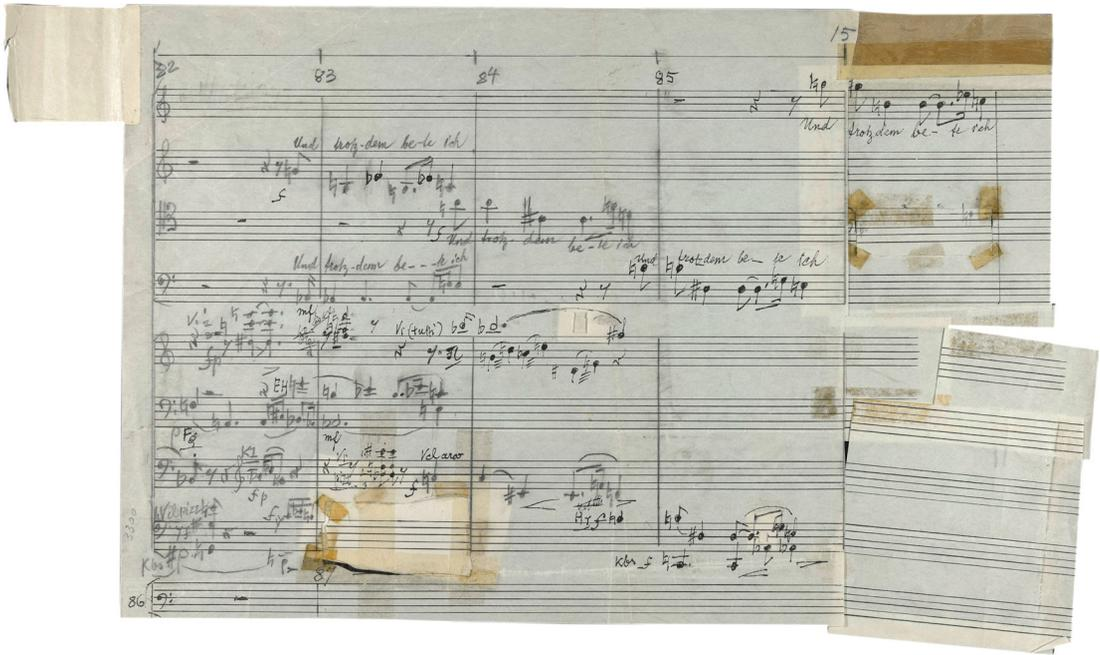 15
82 83 84 85
Und trotz-dem be-te ich
Und
trotzdem be- te ich
f
f
Und trotz- dem be-te ich
Und trotz-dem be- - -te ich
Und trotzdem be- te ich
mf
Vi (tutti)
fp
EH
p
mf
Fg
K1
Vcl arco
fp
f
Vcl pizz
3300
Kbs
Kbs f
87
86